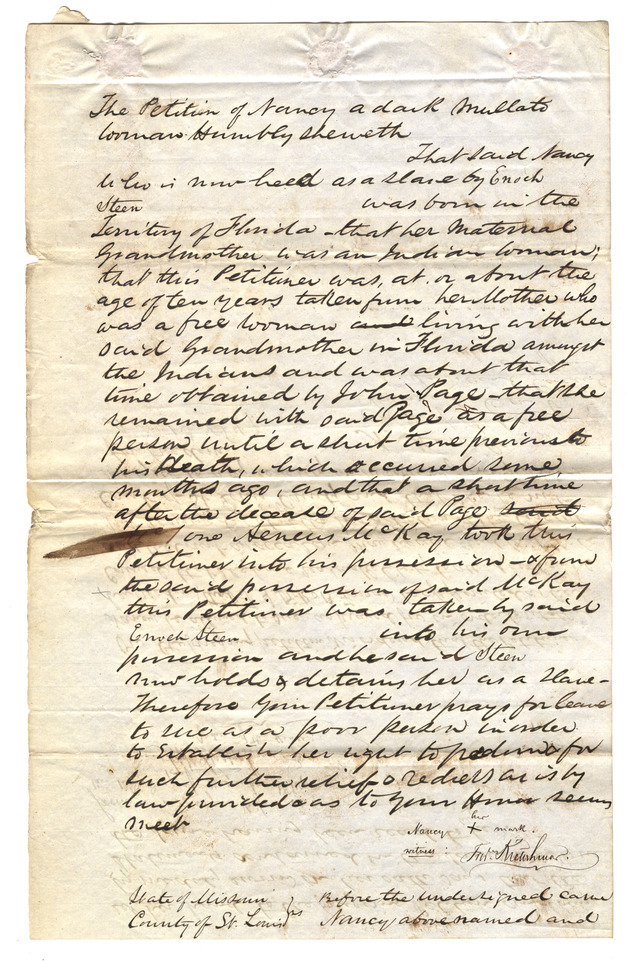 The Petition of Nancy a dark Mullato
Woman Humbly sheweth
That said Nancy
Who is now heed as a slave by Enoch
Steen was born in the
Territory of Florida - that her Maternal
Grandmother was an Indian Woman;
that this Petitiner was, at, or about the
age of ten years taken from her Mother who
was a free Woman and living with her
said Grandmother in Florida amongst
the Indians and was about that
time obtained by John Page - that she
remained with said Page as a free
person until a short time previous to
his death, which occurred some
months ago, and that a short time
after the decease of said Page said
one Aeneus McKay took this
Petitiner into his possession - & from
the said possession of said McKay
this Petitiner was taken by said
Enoch Steen into his own
possession and he said Steen
now holds & detains her as a slave -
Therefore Your Petitiner prays for leave
to sue as a poor person in order
to Establish her right to freedom & for
such further relief & redress as is by
law provided & as to Your Honor seems
meet
her
Nancy + mark.
witness: Fredk Kretschmar.
State of Missouri } Before the undersigned came
County of St. Louis } ss Nancy above named and